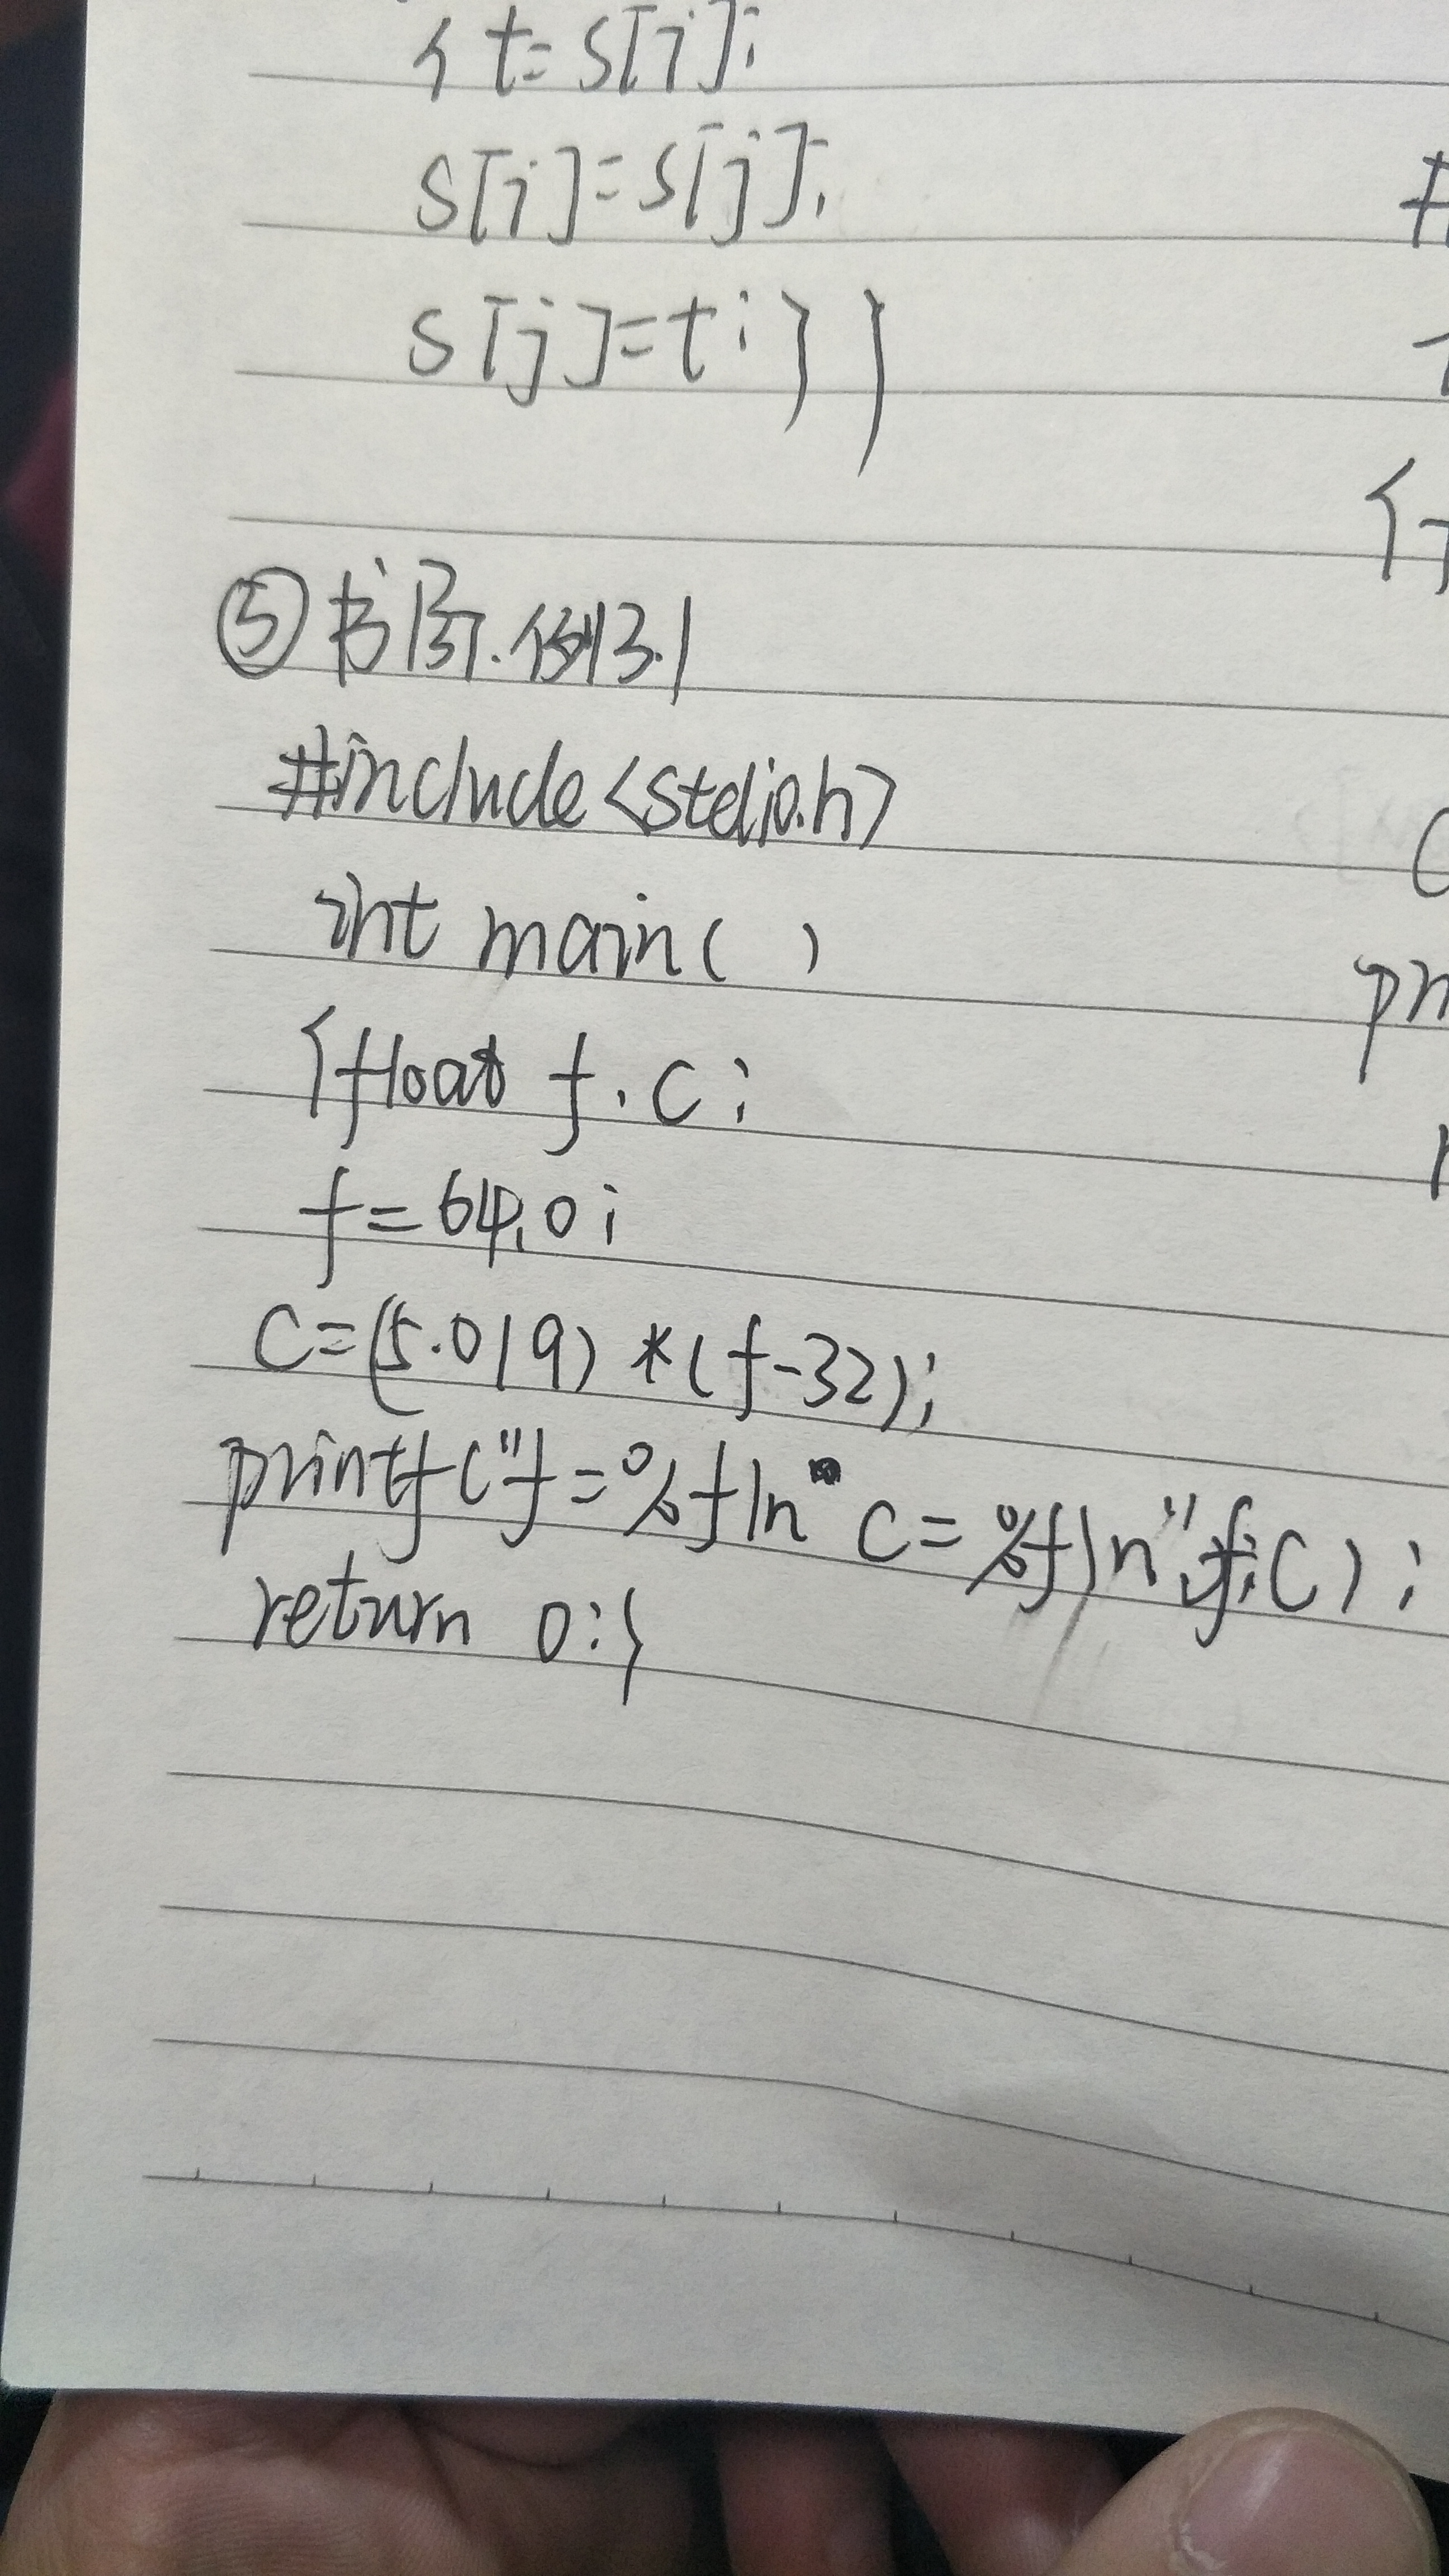 { t=s[i];
s[i]=s[j];
s[j]=t;}}
⑤书P37.例3.1
#include<stdio.h>
int main( )
{float f,c;
f=64.0;
c=(5.0/9)*(f-32);
printf("f=%f\n c=%f\n",f,c);
return 0;}